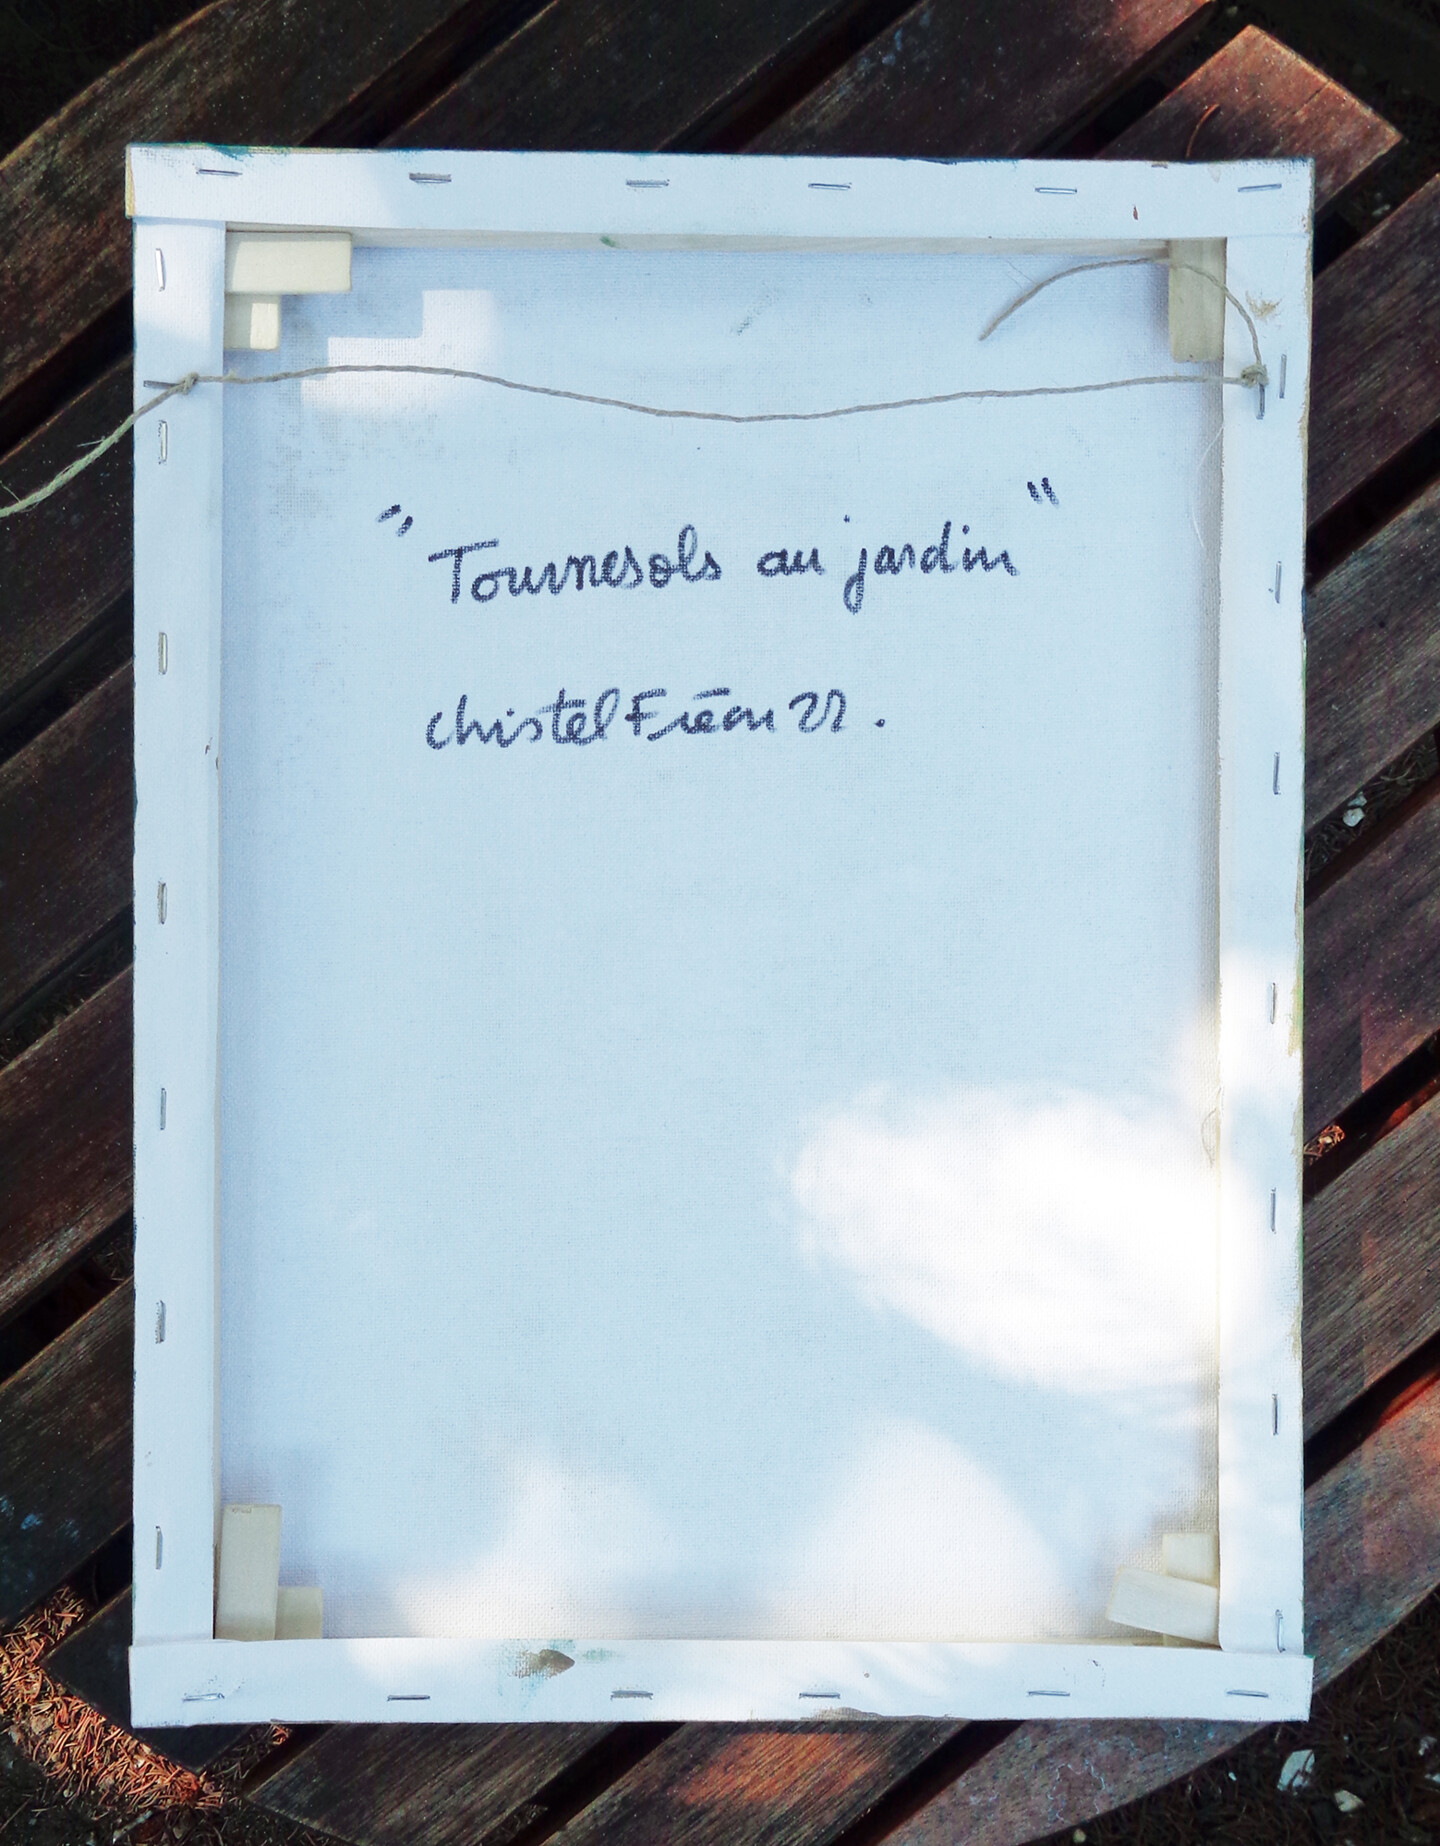 "Tournesols au jardin"
christel Fréon 22.